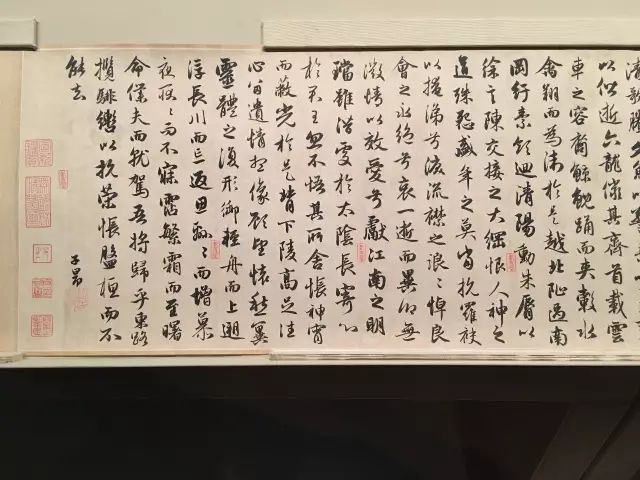 以偕逝六龍儼其齊首載雲
車之容裔鯨鯢踊而夾轂水
禽翔而為衛於是越北沚過南
岡紆素領迴清陽動朱脣以
徐言陳交接之大綱恨人神之
道殊怨盛年之莫當抗羅袂
以掩涕兮淚流襟之浪〻悼良
會之永絕兮哀一逝而異鄉無
微情以效愛兮獻江南之明
璫雖潛處於太陰長寄心
於君王忽不悟其所舍悵神宵
而蔽光於是背下陵高足往
心留遺情想像顧望懷愁冀
靈體之復形御輕舟而上遡
浮長川而忘返思綿〻而增慕
夜耿〻而不寐霑繁霜而至曙
命僕夫而就駕吾將歸乎東路
攬騑轡以抗策悵盤桓而不
能去
子昂